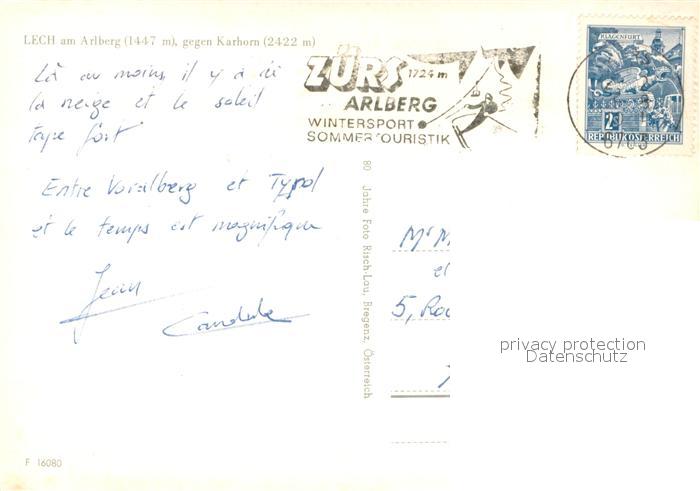 LECH am Arlberg (1447 m), gegen Karhorn (2422 m)
Là au moins, il y a ici
la neige et le soleil
tape fort
Entre Voralberg et Tyrol
et le temps est magnifique
Jean
ZÜRS 1724 m
ARLBERG
WINTERSPORT
SOMMERTOURISTIK
KLAGENFURT
2S
REPUBLIK ÖSTERREICH
80 Jahre Foto Risch-Lau, Bregenz, Österreich
Mr M
et
5,
privacy protection
Datenschutz
F 16080